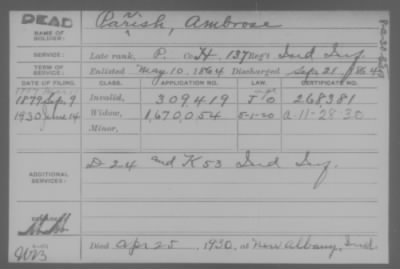 DEAD
NAME OF SOLDIER: Parrish, Ambrose
SERVICE: Late rank, P. Co. H, 137 Reg't Ind Inf.
TERM OF SERVICE: Enlisted May 10, 1864 Discharged Sep. 21, 1864
DATE OF FILING. CLASS. APPLICATION NO. LAW. CERTIFICATE NO.
1879 Sep. 9 Invalid, 309419 268381
1930 June 14 Widow, 1,670,054 5-1-20 a-11-28-30
Minor,
ADDITIONAL SERVICES: D 24 and K 53 Ind Inf.
REMARKS:
Died Apr 25, 1930, at New Albany, Ind.